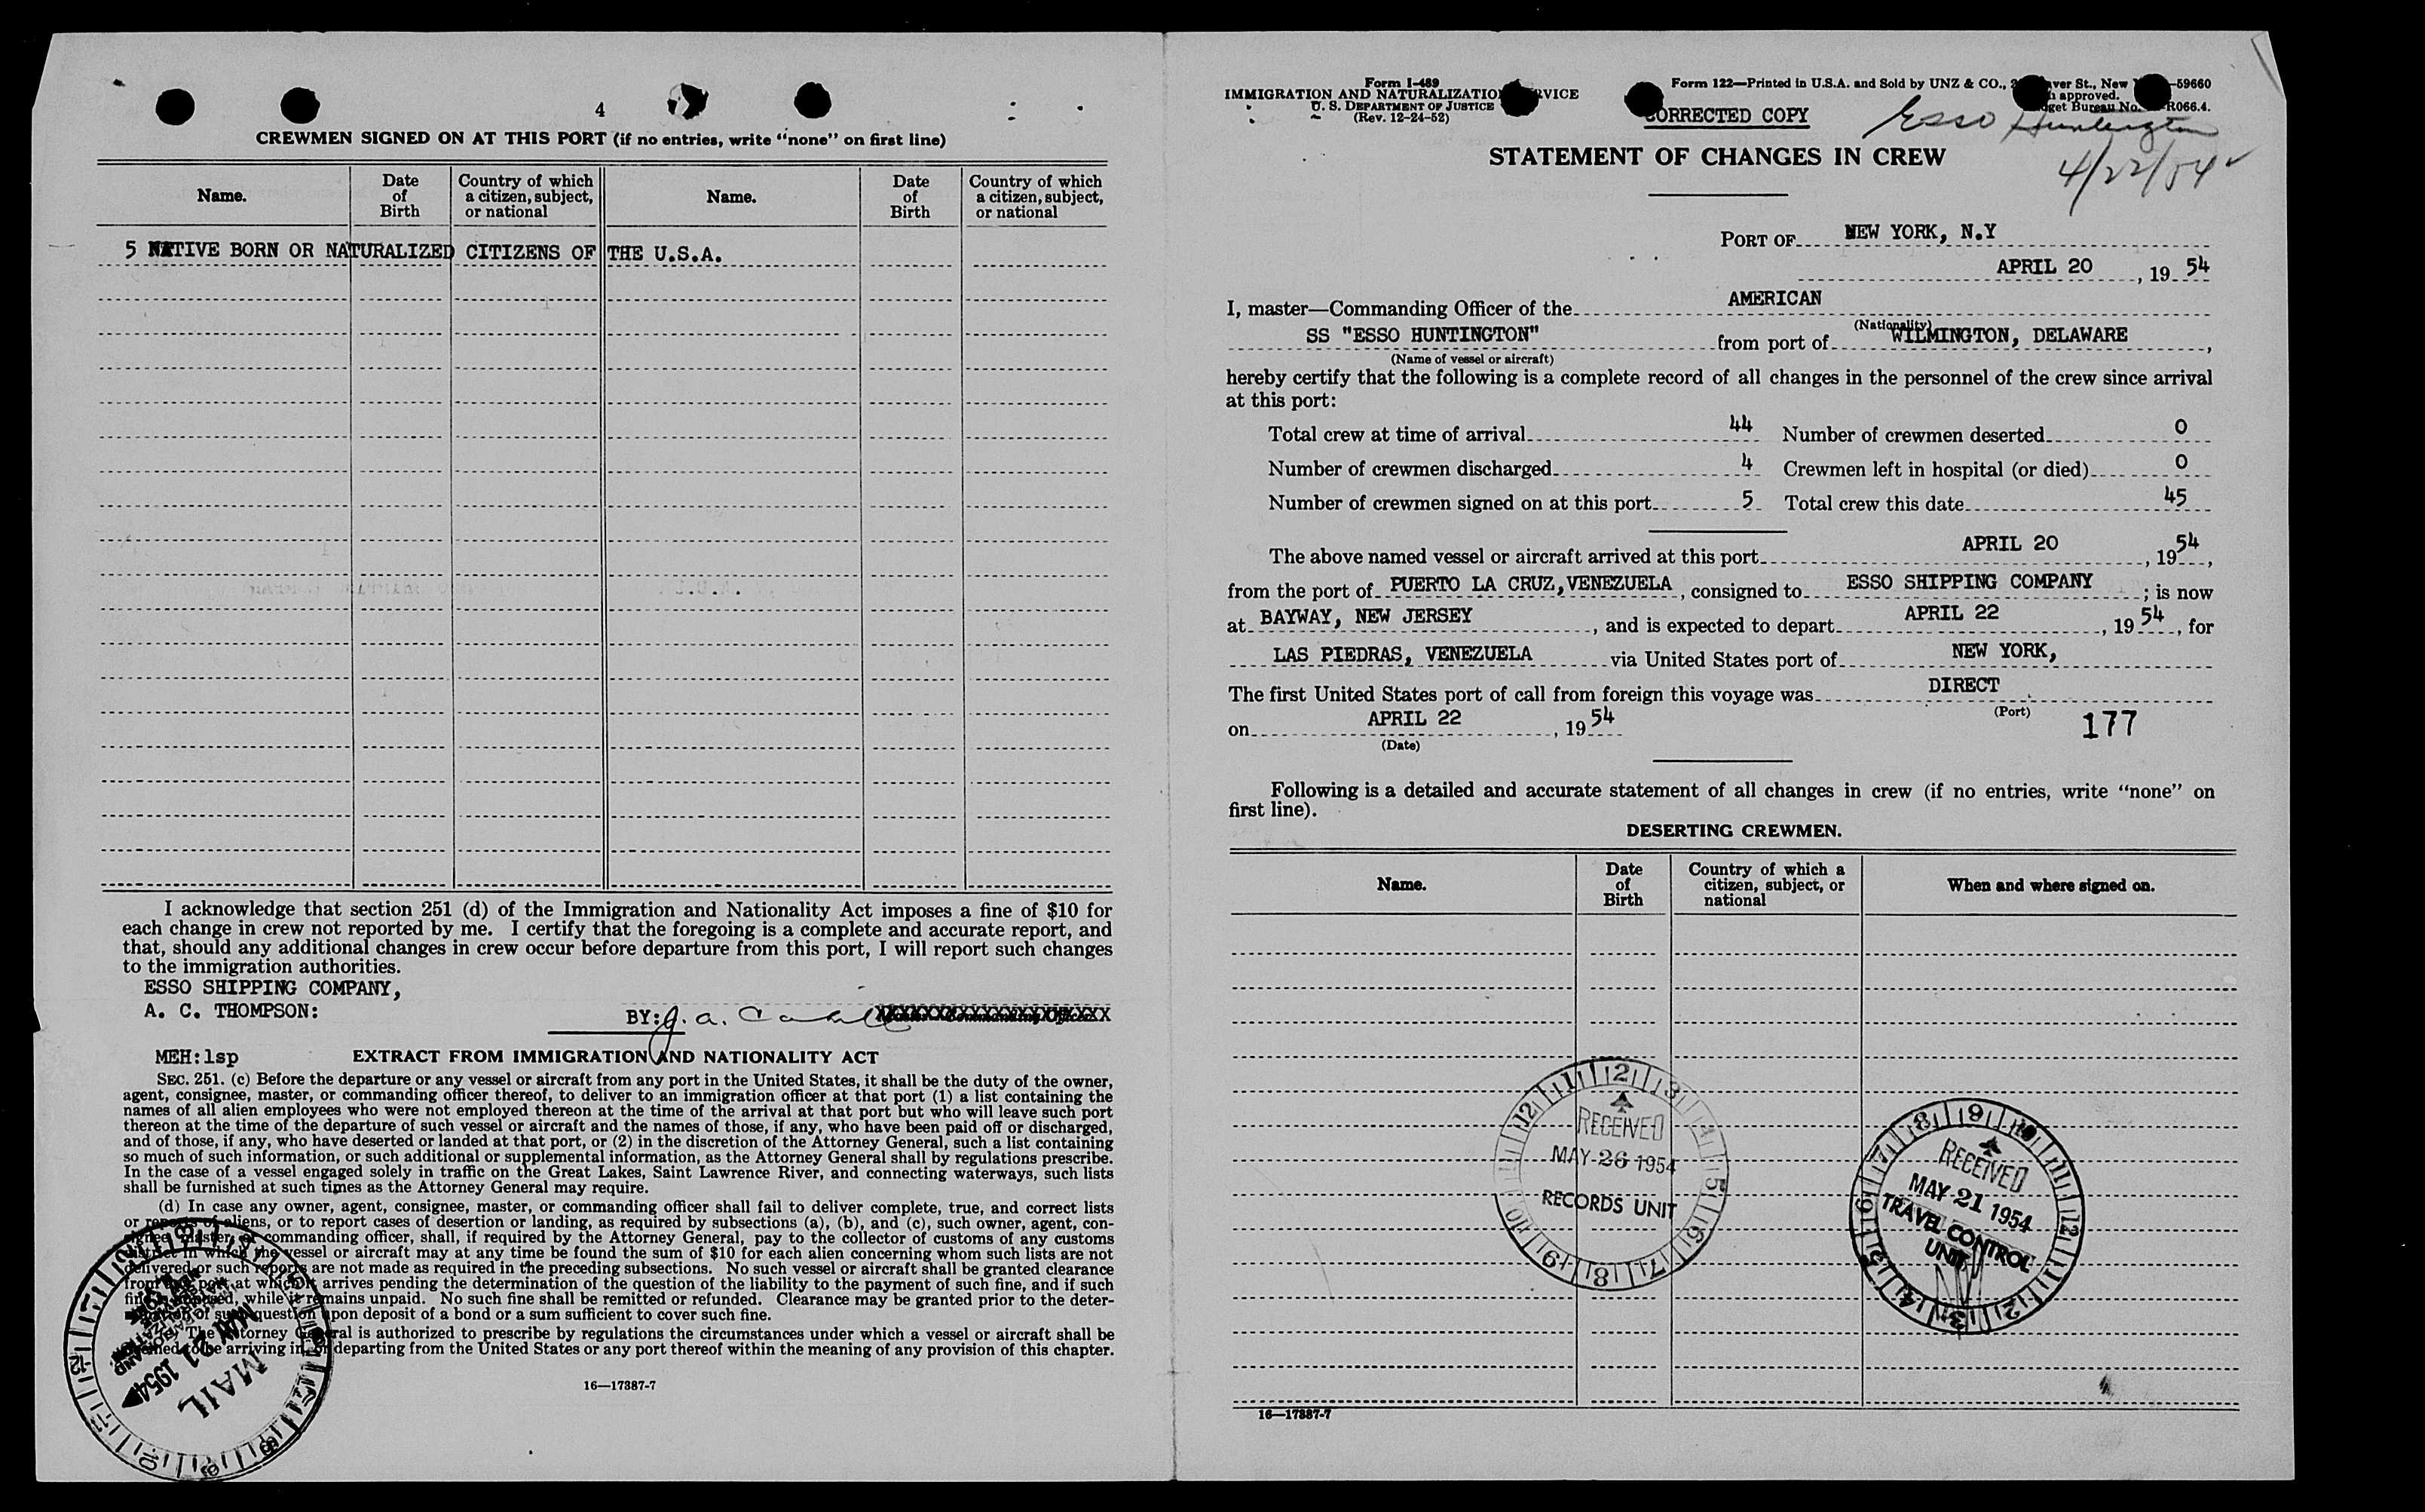 4
CREWMEN SIGNED ON AT THIS PORT (if no entries, write "none" on first line)
Name. Date of Birth Country of which a citizen, subject, or national Name. Date of Birth Country of which a citizen, subject, or national
5 NATIVE BORN OR NATURALIZED CITIZENS OF THE U.S.A.
I acknowledge that section 251 (d) of the Immigration and Nationality Act imposes a fine of $10 for
each change in crew not reported by me. I certify that the foregoing is a complete and accurate report, and
that, should any additional changes in crew occur before departure from this port, I will report such changes
to the immigration authorities.
ESSO SHIPPING COMPANY,
A. C. THOMPSON: BY: J. A.
MEH:lsp EXTRACT FROM IMMIGRATION AND NATIONALITY ACT
SEC. 251. (c) Before the departure or any vessel or aircraft from any port in the United States, it shall be the duty of the owner,
agent, consignee, master, or commanding officer thereof, to deliver to an immigration officer at that port (1) a list containing the
names of all alien employees who were not employed thereon at the time of the arrival at that port but who will leave such port
thereon at the time of the departure of such vessel or aircraft and the names of those, if any, who have been paid off or discharged,
and of those, if any, who have deserted or landed at that port, or (2) in the discretion of the Attorney General, such a list containing
so much of such information, or such additional or supplemental information, as the Attorney General shall by regulations prescribe.
In the case of a vessel engaged solely in traffic on the Great Lakes, Saint Lawrence River, and connecting waterways, such lists
shall be furnished at such times as the Attorney General may require.
(d) In case any owner, agent, consignee, master, or commanding officer shall fail to deliver complete, true, and correct lists
or reports of aliens, or to report cases of desertion or landing, as required by subsections (a), (b), and (c), such owner, agent, con-
signee, master, or commanding officer, shall, if required by the Attorney General, pay to the collector of customs of any customs
district in which the vessel or aircraft may at any time be found the sum of $10 for each alien concerning whom such lists are not
delivered or such reports are not made as required in the preceding subsections. No such vessel or aircraft shall be granted clearance
from any port at which it arrives pending the determination of the question of the liability to the payment of such fine, and if such
fine is imposed, while it remains unpaid. No such fine shall be remitted or refunded. Clearance may be granted prior to the deter-
mination of such question upon deposit of a bond or a sum sufficient to cover such fine.
The Attorney General is authorized to prescribe by regulations the circumstances under which a vessel or aircraft shall be
deemed to be arriving in, or departing from the United States or any port thereof within the meaning of any provision of this chapter.
MAIL
MAY 21 1954
16—17387-7
Form I-489
IMMIGRATION AND NATURALIZATION SERVICE
U. S. DEPARTMENT OF JUSTICE
(Rev. 12-24-52)
Form 122—Printed in U.S.A. and Sold by UNZ & CO., ver St., New -59660
approved.
get Bureau No. R066.4.
CORRECTED COPY
Esso Huntington
4/22/54
STATEMENT OF CHANGES IN CREW
PORT OF NEW YORK, N.Y
APRIL 20, 19 54
I, master—Commanding Officer of the AMERICAN
(Nationality)
SS "ESSO HUNTINGTON" from port of WILMINGTON, DELAWARE,
(Name of vessel or aircraft)
hereby certify that the following is a complete record of all changes in the personnel of the crew since arrival
at this port:
Total crew at time of arrival 44 Number of crewmen deserted 0
Number of crewmen discharged 4 Crewmen left in hospital (or died) 0
Number of crewmen signed on at this port 5 Total crew this date 45
The above named vessel or aircraft arrived at this port APRIL 20, 19 54,
from the port of PUERTO LA CRUZ, VENEZUELA, consigned to ESSO SHIPPING COMPANY; is now
at BAYWAY, NEW JERSEY, and is expected to depart APRIL 22, 19 54, for
LAS PIEDRAS, VENEZUELA via United States port of NEW YORK,
The first United States port of call from foreign this voyage was DIRECT
(Port)
on APRIL 22, 19 54 177
(Date)
Following is a detailed and accurate statement of all changes in crew (if no entries, write "none" on
first line).
DESERTING CREWMEN.
Name. Date of Birth Country of which a citizen, subject, or national When and where signed on.
RECEIVED
MAY 26 1954
RECORDS UNIT
RECEIVED
MAY 21 1954
TRAVEL CONTROL
UNIT
16—17387-7